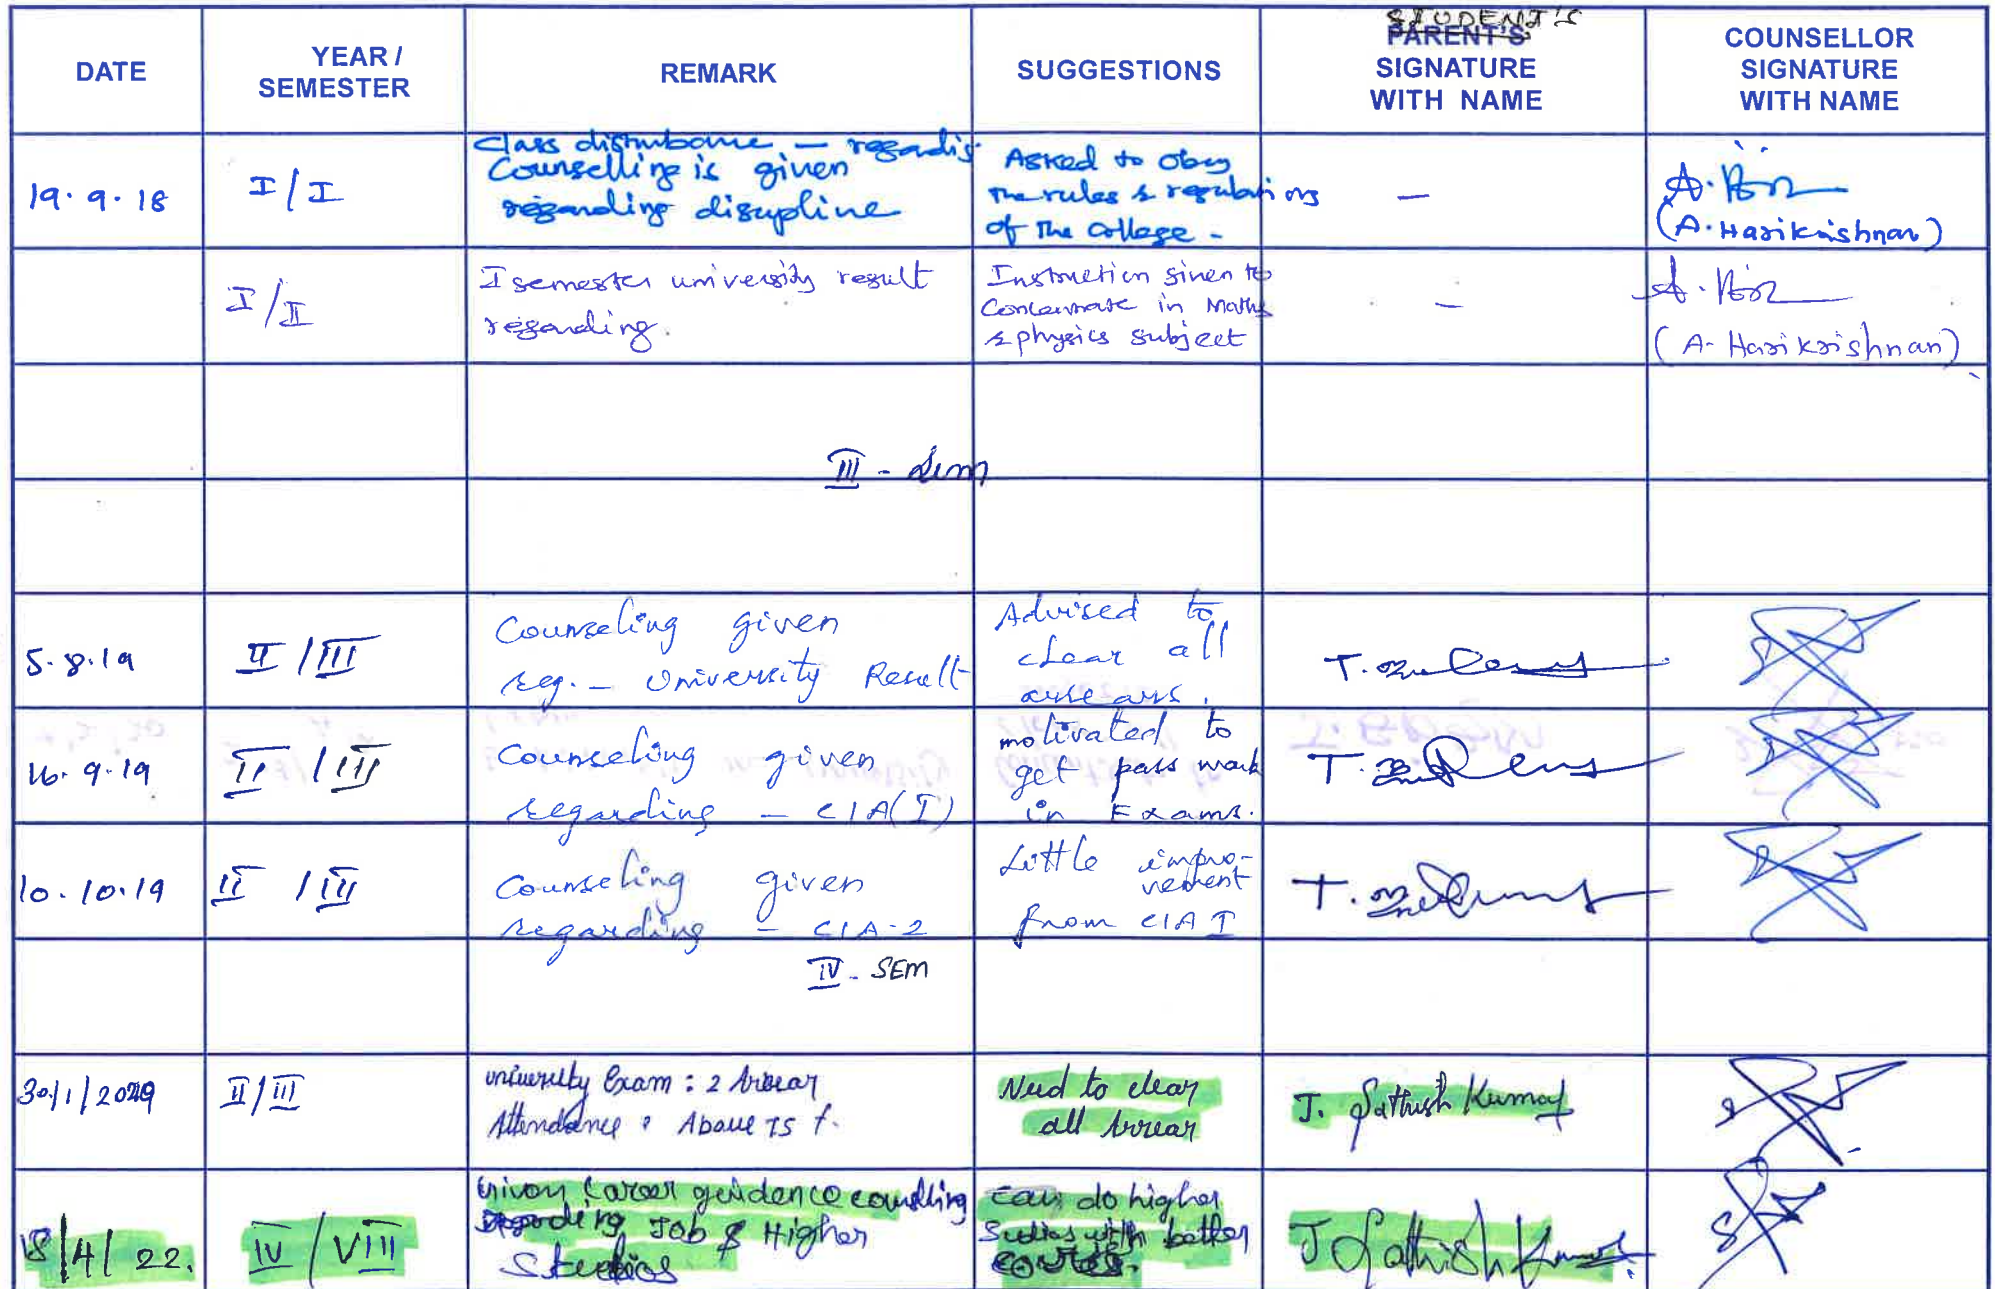 STUDENT'S
DATE
YEAR /
SEMESTER
REMARK
SUGGESTIONS
PARENT'S
SIGNATURE
WITH NAME
COUNSELLOR
SIGNATURE
WITH NAME
19.9.18
I/I
Class disturbance – regardig
Counselling is given
regarding discipline
Asked to obey
the rules & regulations
of the college -
–
(A. Harikrishnan)
I/II
I semester university result
regarding.
Instruction given to
Concentrate in Maths
& physics subject
–
(A. Harikrishnan)
III - Sem
5.8.19
II / III
Counseling given
reg. – University Result
Advised to
clear all
arrears.
16.9.19
II / III
Counseling given
regarding – CIA(I)
motivated to
get pass mark
in Exams.
10.10.19
II / III
Counseling given
regarding – CIA-2
Little impro-
vement
from CIA I
IV - SEM
30/1/20
II/III
University Exam : 2 Arrear
Attendance : Above 75 %.
Need to clear
all Arrear
J. Sathish Kumar
18/4/22.
IV / VIII
Given Career guidance counslling
regarding Job & Higher
Studies
Can do higher
Studies with better
J Sathish Kumar